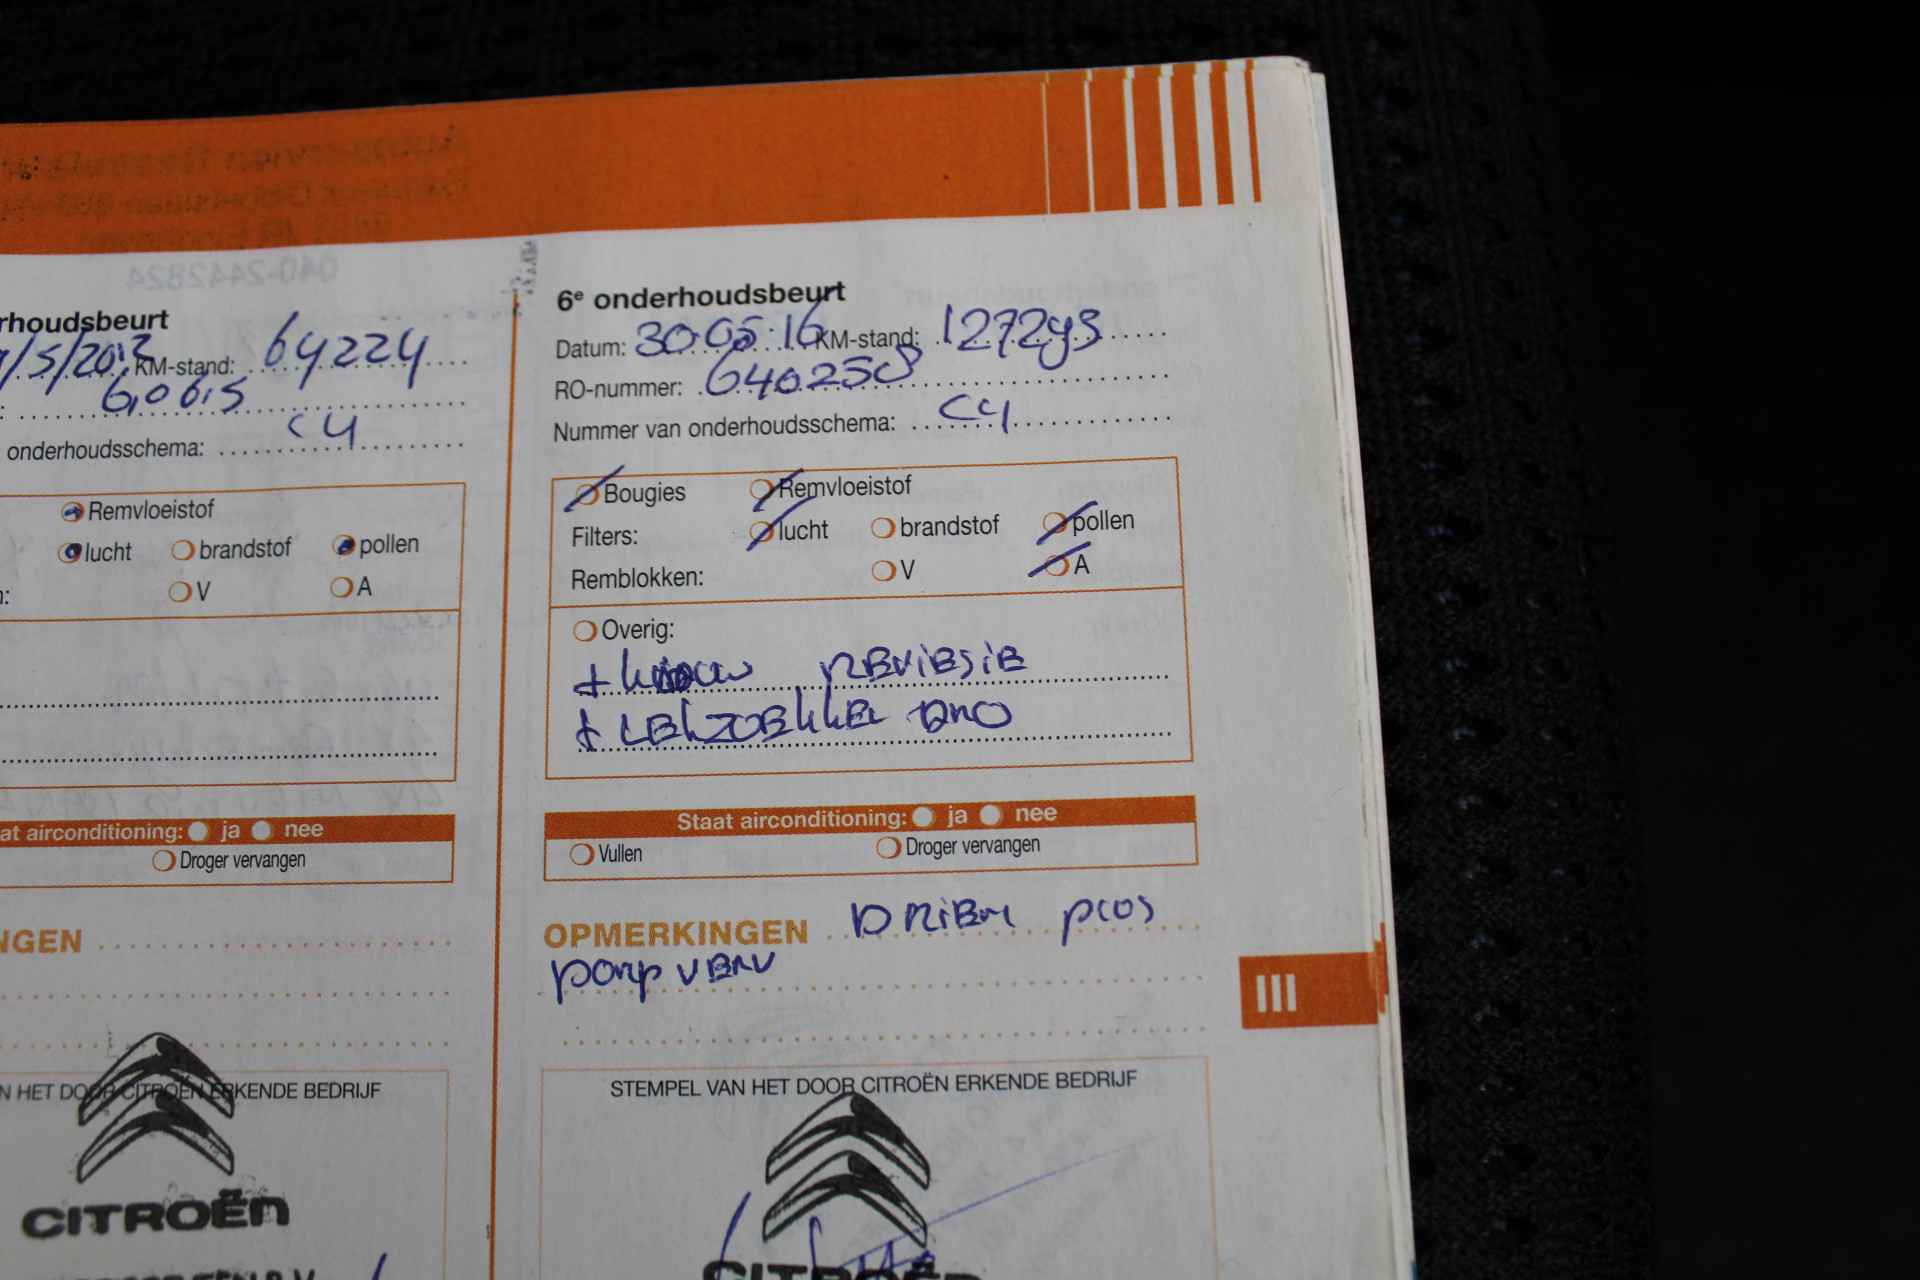 rhoudsbeurt
/5/2012 KM-stand: 64224
: 6,06,5
onderhoudsschema: C4
Remvloeistof
lucht brandstof pollen
n: V A
at airconditioning: ja nee
Droger vervangen
NGEN
N HET DOOR CITROËN ERKENDE BEDRIJF
CITROËN
6e onderhoudsbeurt
Datum: 30.05.16 KM-stand: 127293
RO-nummer: 640258
Nummer van onderhoudsschema: C4
Bougies Remvloeistof
Filters: lucht brandstof pollen
Remblokken: V A
Overig:
+ REViESiE
+
Staat airconditioning: ja nee
Vullen Droger vervangen
OPMERKINGEN DRiEM
pomp VERV
III
STEMPEL VAN HET DOOR CITROËN ERKENDE BEDRIJF
CITROËN
040-2442824